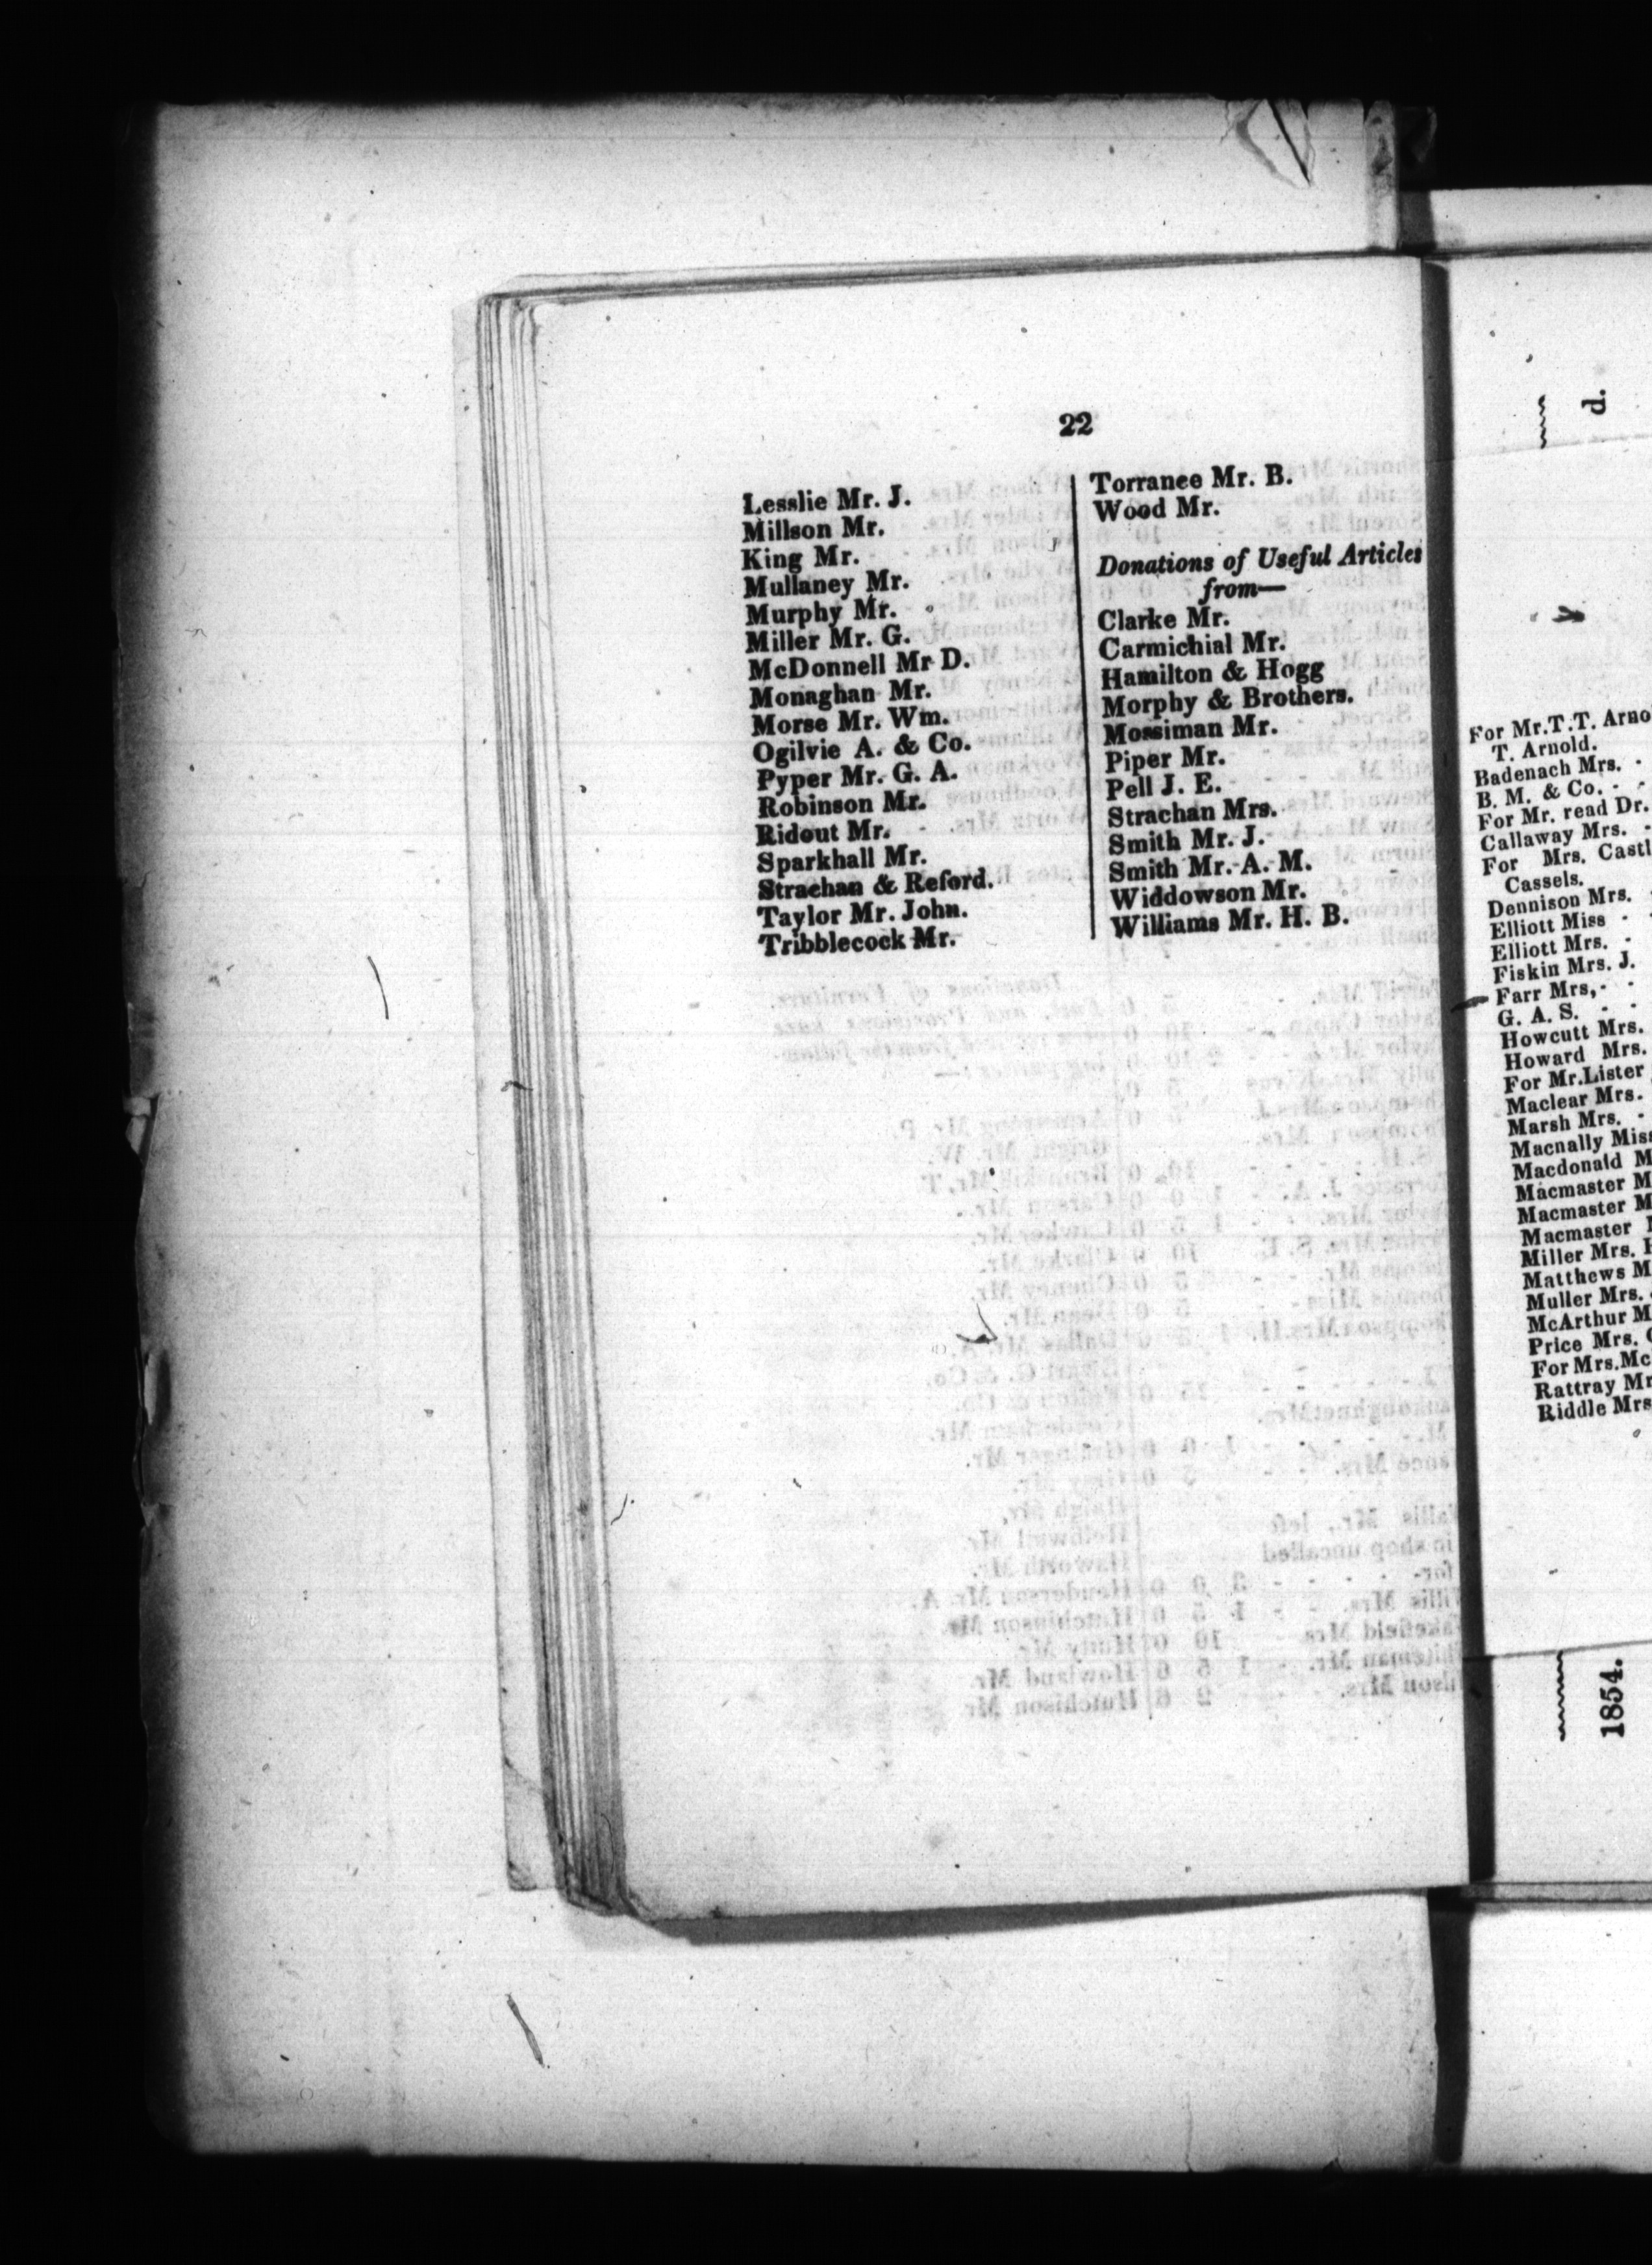 22
Lesslie Mr. J.
Millson Mr.
King Mr.
Mullaney Mr.
Murphy Mr.
Miller Mr. G.
McDonnell Mr D.
Monaghan Mr.
Morse Mr. Wm.
Ogilvie A. & Co.
Pyper Mr. G. A.
Robinson Mr.
Ridout Mr.
Sparkhall Mr.
Strachan & Reford.
Taylor Mr. John.
Tribblecock Mr.
Torrance Mr. B.
Wood Mr.
Donations of Useful Articles
from—
Clarke Mr.
Carmichial Mr.
Hamilton & Hogg
Morphy & Brothers.
Mossiman Mr.
Piper Mr.
Pell J. E.
Strachan Mrs.
Smith Mr. J.
Smith Mr. A. M.
Widdowson Mr.
Williams Mr. H. B.
d.
For Mr. T. T. Arno
T. Arnold.
Badenach Mrs. -
B. M. & Co. - -
For Mr. read Dr.
Callaway Mrs. -
For Mrs. Castl
Cassels.
Dennison Mrs.
Elliott Miss -
Elliott Mrs. -
Fiskin Mrs. J.
Farr Mrs, - -
G. A. S. - -
Howcutt Mrs.
Howard Mrs.
For Mr. Lister
Maclear Mrs.
Marsh Mrs. -
Macnally Miss
Macdonald M
Macmaster M
Macmaster M
Macmaster
Miller Mrs.
Matthews M
Muller Mrs.
McArthur M
Price Mrs.
For Mrs. Mc
Rattray Mr
Riddle Mrs
1854.